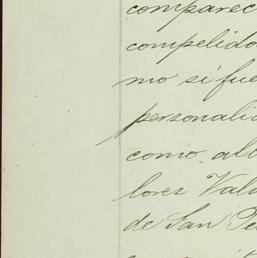 comparec
compelido
mo si fue
personalid
como alb
lores Vald
de San Pe